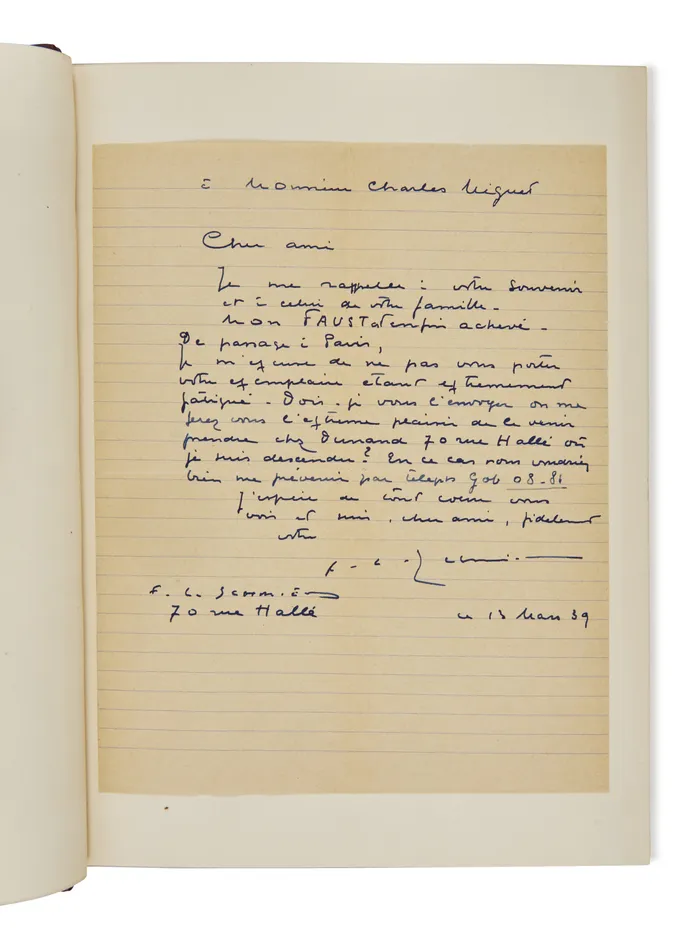 à Monsieur Charles Miguet
Cher ami
Je me rappelle à votre souvenir
et à celui de votre famille -
Mon FAUST est enfin achevé -
De passage à Paris,
Je m'excuse de ne pas vous porter
votre exemplaire étant extrêmement
fatigué - Dois-je vous l'envoyer ou me
ferez vous l'extrême plaisir de le venir
prendre chez Dunand 70 rue Hallé où
je suis descendu? En ce cas vous voudriez
bien me prévenir par téleph Gob 08-81
J'espère de tout coeur vous
voir et suis, cher ami, fidèlement
votre
F. L. Schmied
F. L. Schmied
70 rue Hallé
ce 13 Mars 39